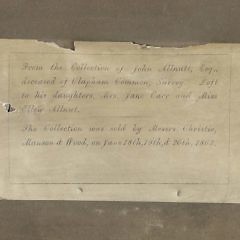 From the Collection of John Allnutt, Esq.
deceased of Clapham Common, Surrey. Left
to his daughters, Mrs. Jane Carr and Miss
Ellen Allnutt.
The Collection was sold by Messrs. Christie,
Manson & Wood, on June 18th, 19th, & 20th, 1863.